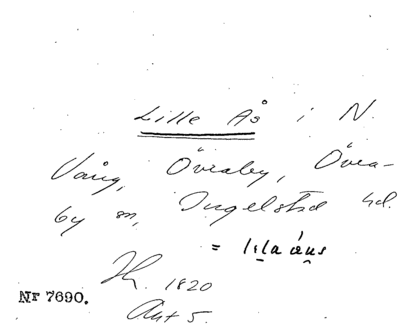 Lille Ås i N.
Vång, Övraby, Övra-
by sn, Ingelstad hd.
= lɩla ås
1820
Akt 5.
Nr 7690.